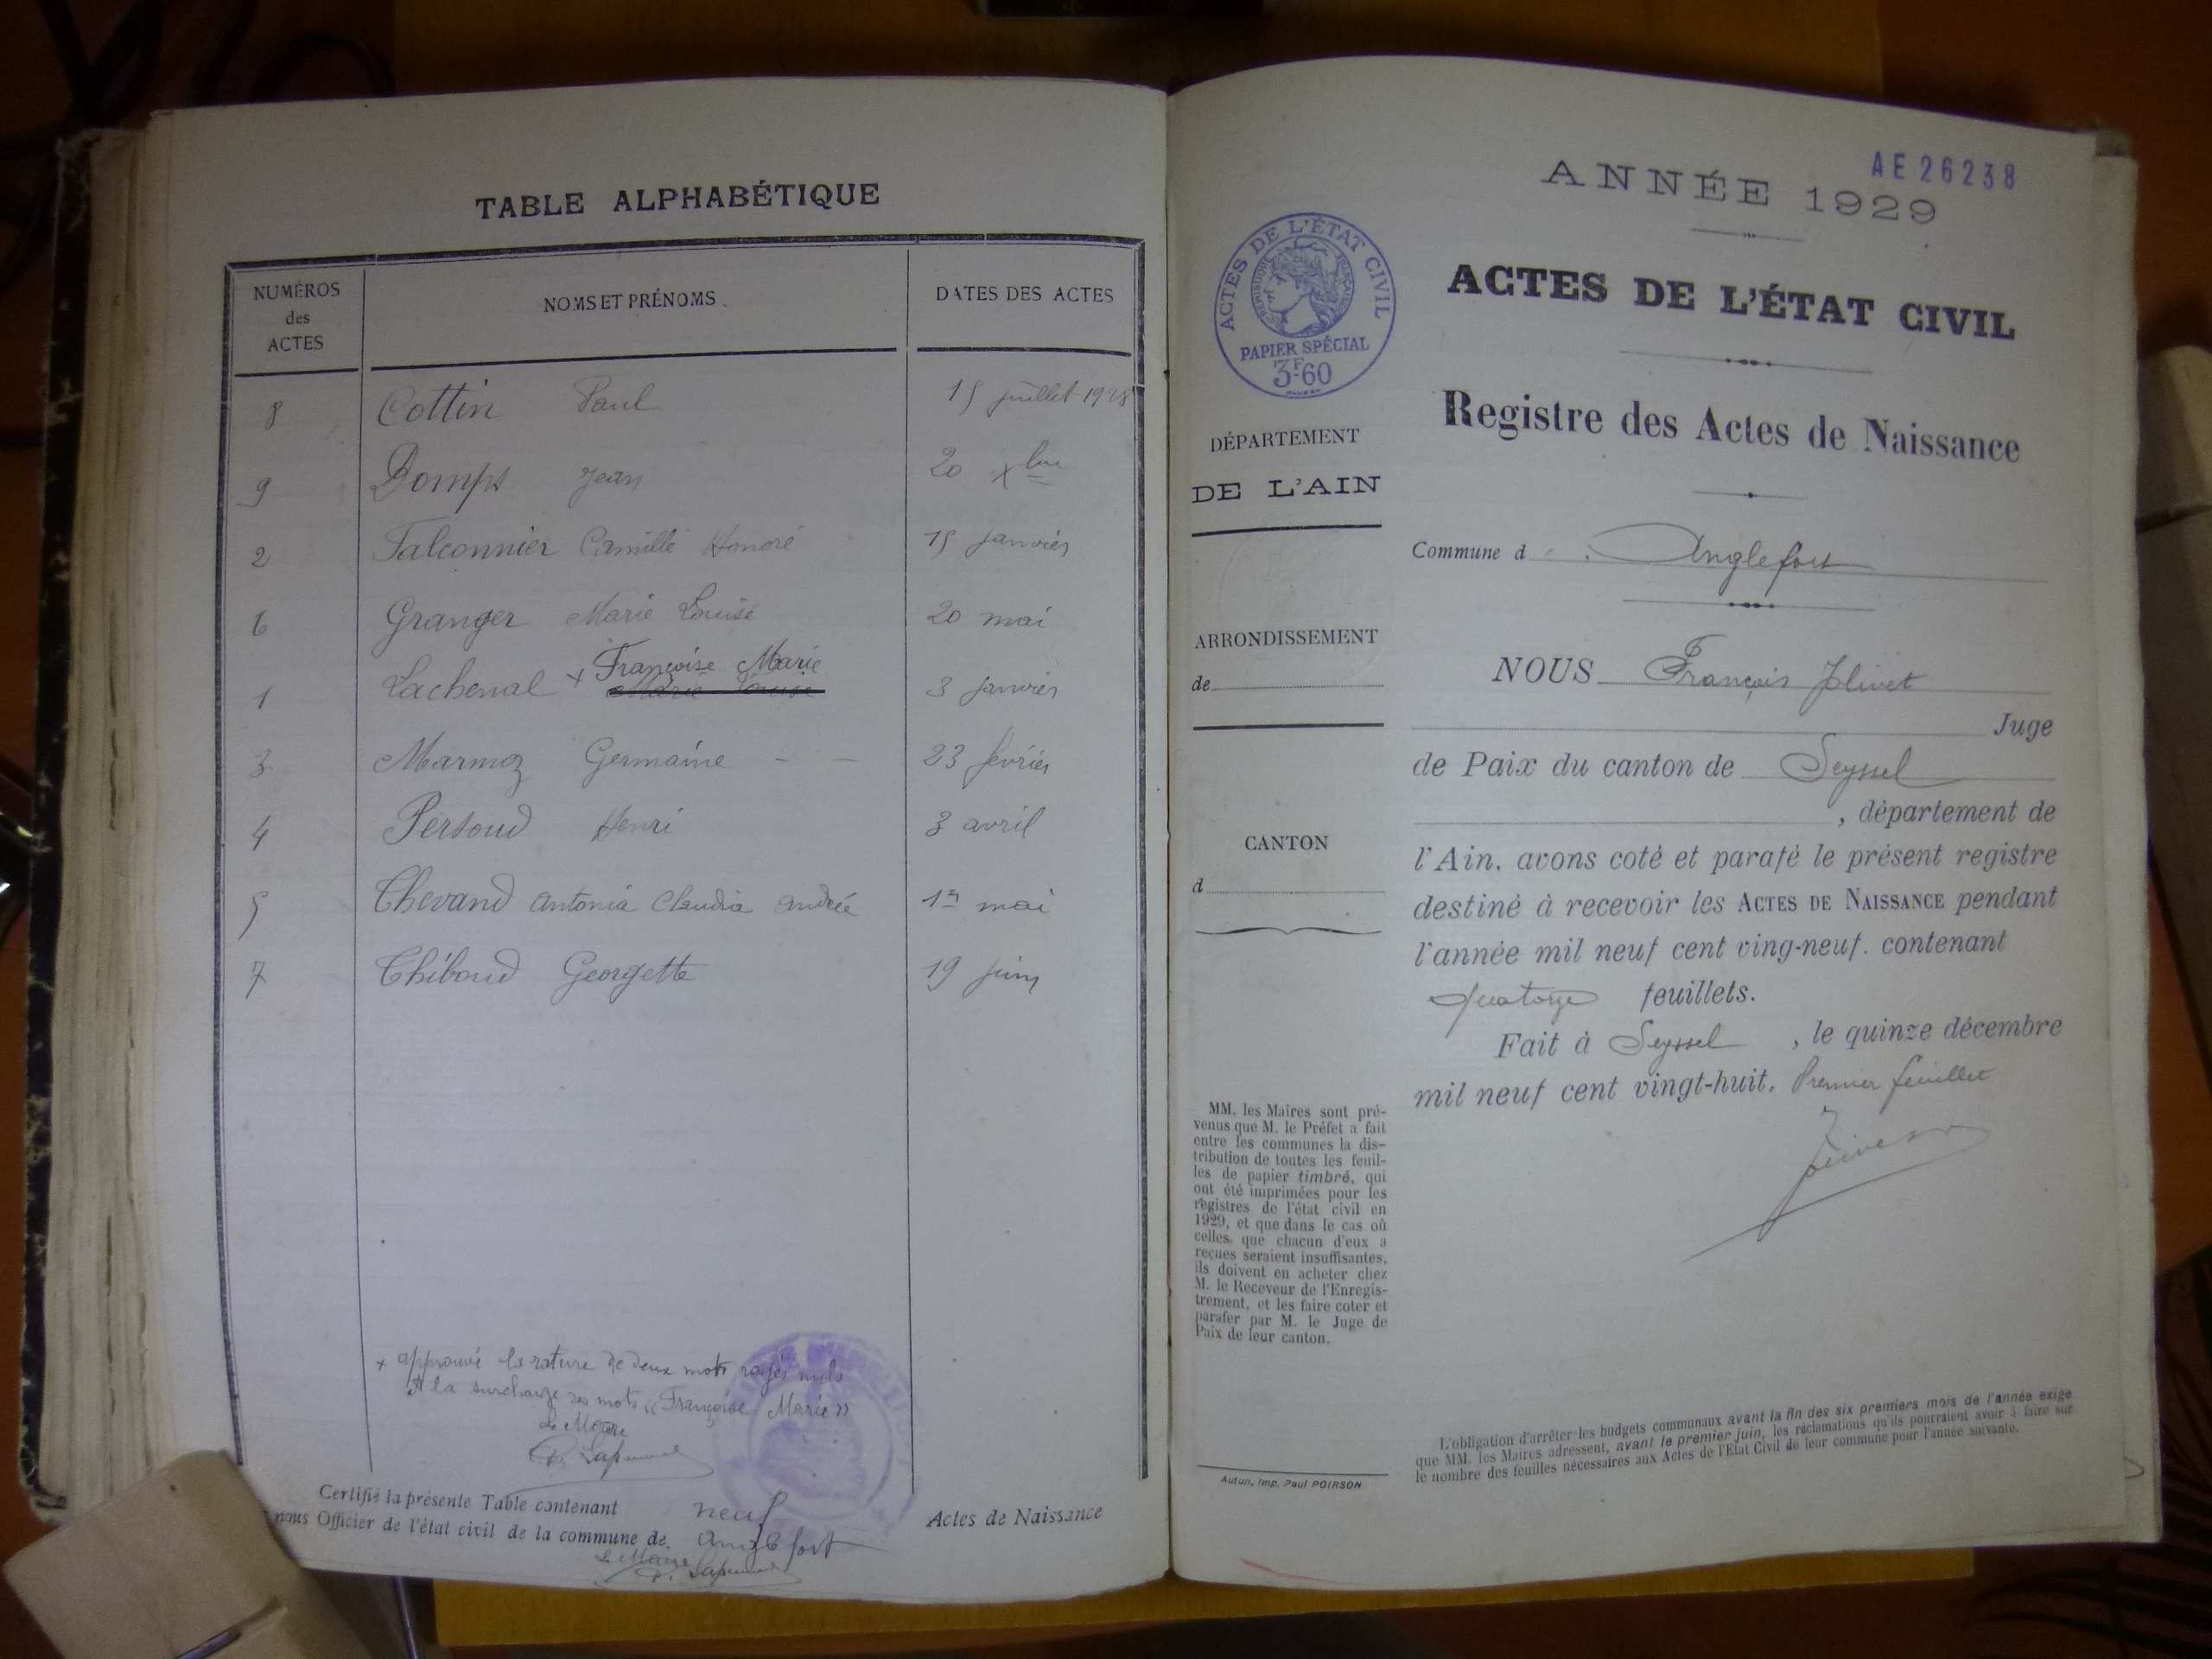 TABLE ALPHABÉTIQUE
NUMÉROS
des
ACTES
NOMS ET PRÉNOMS
DATES DES ACTES
8 Cottin Paul 15 juillet 1928
9 Domps Jean 20 Xbre
2 Falconnier Camille Honoré 15 janvier
6 Granger Marie Louise 20 mai
+ Françoise Marie
1 Lachenal Marie Louise 3 janvier
3 Marmoz Germaine - - 23 février
4 Persoud Henri 3 avril
5 Thevand Antonia Claudia Andrée 1er mai
7 Thiboud Georgette 19 juin
+ approuvé la rature de deux mots rayés nuls
et la surcharge des mots « Françoise Marie »
Le Maire
Certifié la présente Table contenant neuf Actes de Naissance
nous Officier de l'état civil de la commune de Anglefort
Le Maire
AE 26238
ANNÉE 1929
ACTES DE L'ÉTAT CIVIL
RÉPUBLIQUE FRANÇAISE
PAPIER SPÉCIAL
3F60
ACTES DE L'ÉTAT CIVIL
Registre des Actes de Naissance
DÉPARTEMENT
DE L'AIN
ARRONDISSEMENT
de
CANTON
d
Commune d Anglefort
NOUS François Jolivet
Juge
de Paix du canton de Seyssel
, département de
l'Ain, avons coté et parafé le présent registre
destiné à recevoir les ACTES DE NAISSANCE pendant
l'année mil neuf cent ving-neuf. contenant
quatorze feuillets.
Fait à Seyssel , le quinze décembre
mil neuf cent vingt-huit. Premier feuillet
MM. les Maires sont pré-
venus que M. le Préfet a fait
entre les communes la dis-
tribution de toutes les feuil-
les de papier timbré, qui
ont été imprimées pour les
registres de l'état civil en
1929, et que dans le cas où
celles que chacun d'eux a
reçues seraient insuffisantes,
ils doivent en acheter chez
M. le Receveur de l'Enregis-
trement, et les faire coter et
parafer par M. le Juge de
Paix de leur canton.
Autun, Imp. Paul POIRSON
L'obligation d'arrêter les budgets communaux avant la fin des six premiers mois de l'année exige
que MM. les Maires adressent, avant le premier juin, les réclamations qu'ils pourraient avoir à faire sur
le nombre des feuilles nécessaires aux Actes de l'Etat Civil de leur commune pour l'année suivante.